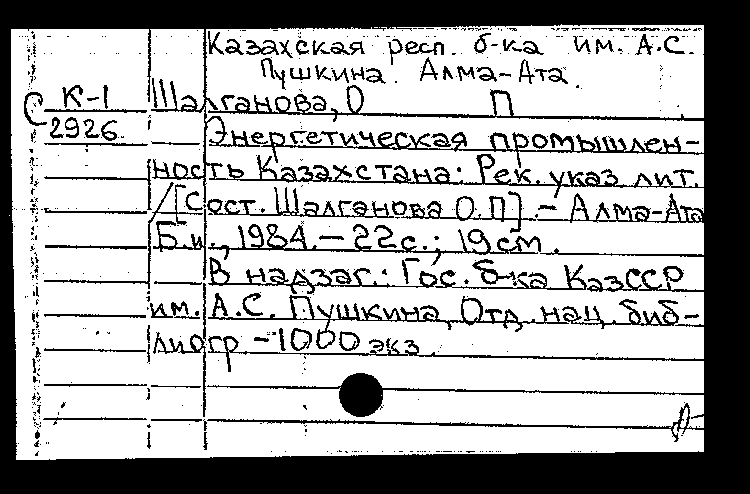 Казахская респ. б-ка им. А.С.
Пушкина. Алма-Ата.
С К-1 Шалганова, О П
2926. Энергетическая промышлен-
ность Казахстана: Рек. указ. лит.
/[Сост. Шалганова О.П]. - Алма-Ата
Б.и., 1984. - 22 с.; 19 см.
В надзаг.: Гос. б-ка КазССР
им. А.С. Пушкина, Отд. нац. биб-
лиогр - 1000 экз.